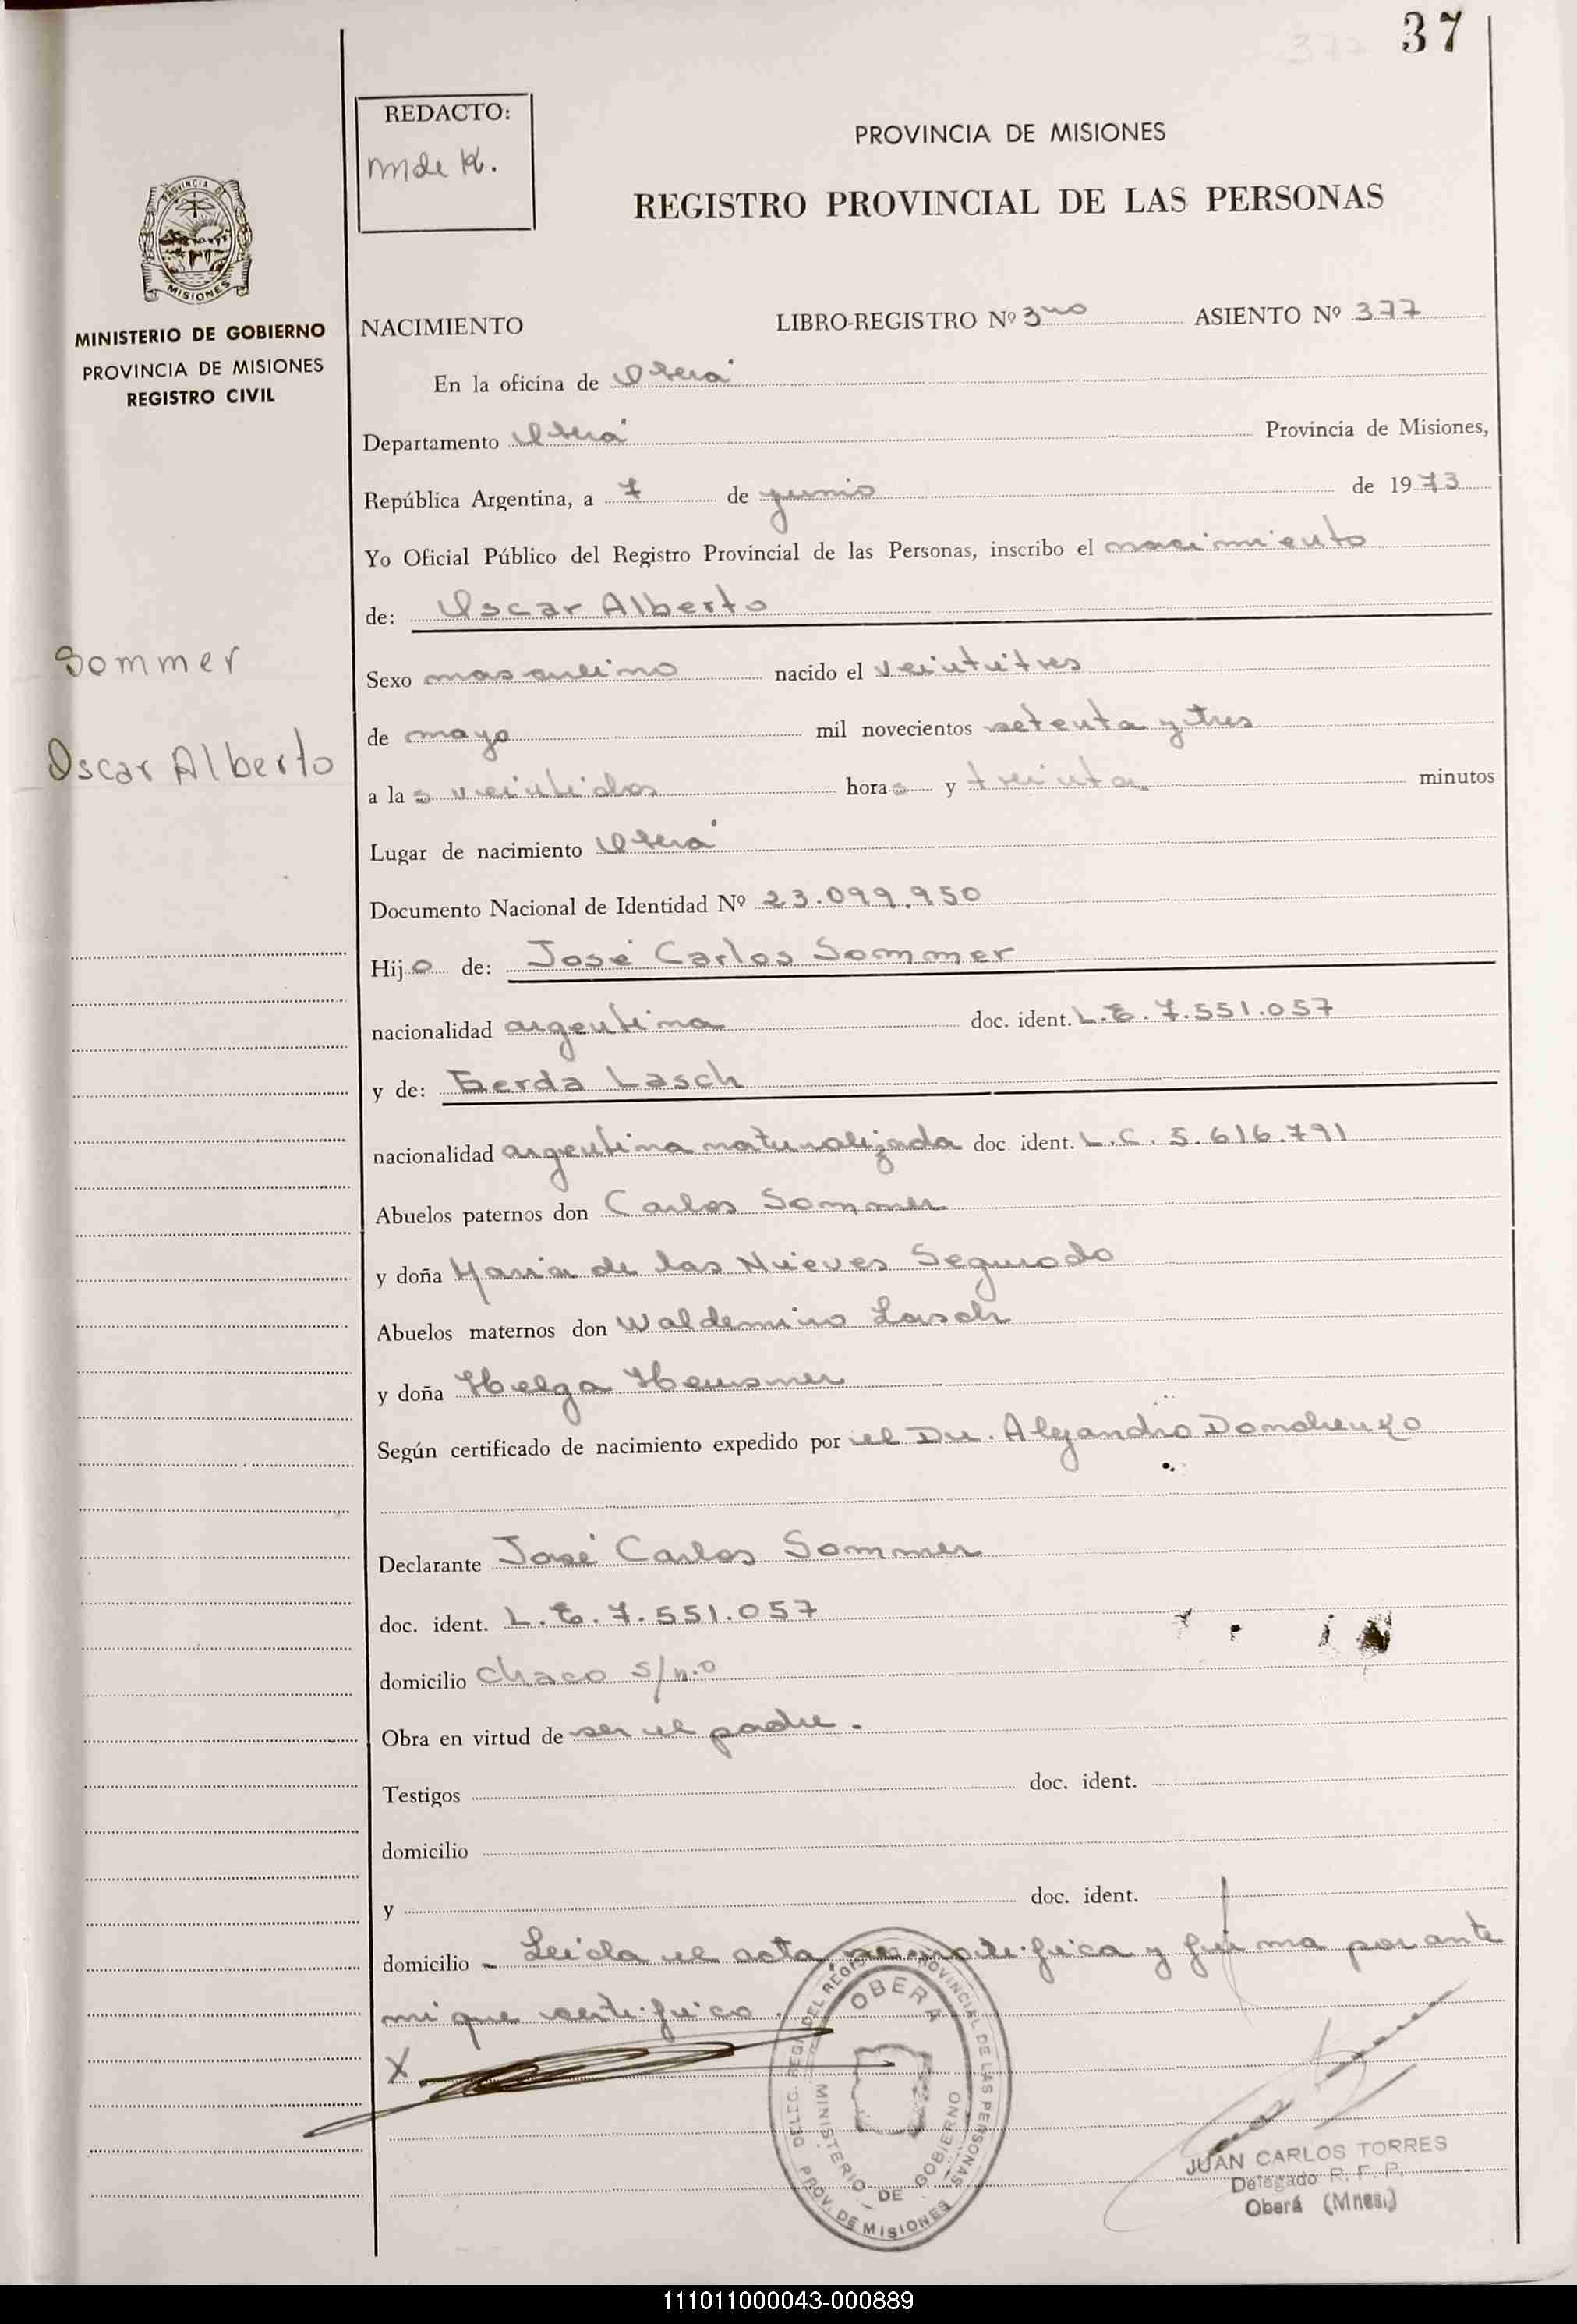 37
REDACTO:
PROVINCIA DE MISIONES
REGISTRO PROVINCIAL DE LAS PERSONAS
PROVINCIA DE
MISIONES
MINISTERIO DE GOBIERNO
PROVINCIA DE MISIONES
REGISTRO CIVIL
NACIMIENTO LIBRO-REGISTRO Nº 3 ASIENTO Nº 377
En la oficina de Oberá
Departamento Oberá Provincia de Misiones,
República Argentina, a 7 de junio de 1973
Yo Oficial Público del Registro Provincial de las Personas, inscribo el nacimiento
de: Oscar Alberto
Sommer
Oscar Alberto
Sexo masculino nacido el veintitres
de mayo mil novecientos setenta y tres
a las veintidos horas y treinta minutos
Lugar de nacimiento Oberá
Documento Nacional de Identidad Nº 23.099.950
Hijo de: José Carlos Sommer
nacionalidad argentina doc. ident. L.E. 7.551.057
y de: Gerda Lasch
nacionalidad argentina naturalizada doc. ident. L.C. 5.616.791
Abuelos paternos don Carlos Sommer
y doña Maria de las Nieves Segundo
Abuelos maternos don Waldemiro Lasch
y doña Helga
Según certificado de nacimiento expedido por el Dr. Alejandro
Declarante José Carlos Sommer
doc. ident. L.E. 7.551.057
domicilio Chaco s/n.o
Obra en virtud de ser el padre.
Testigos doc. ident.
domicilio
y doc. ident.
domicilio - Leida el acta se ratifica y firma por ante
mi que certifico.
X
DELEG. REGI DEL REGIS PROVINCIAL DE LAS PERSONAS
OBERÁ
MINISTERIO DE GOBIERNO
PROV. DE MISIONES
JUAN CARLOS TORRES
Delegado R. F. P.
Oberá (Mnes.)
111011000043-000889